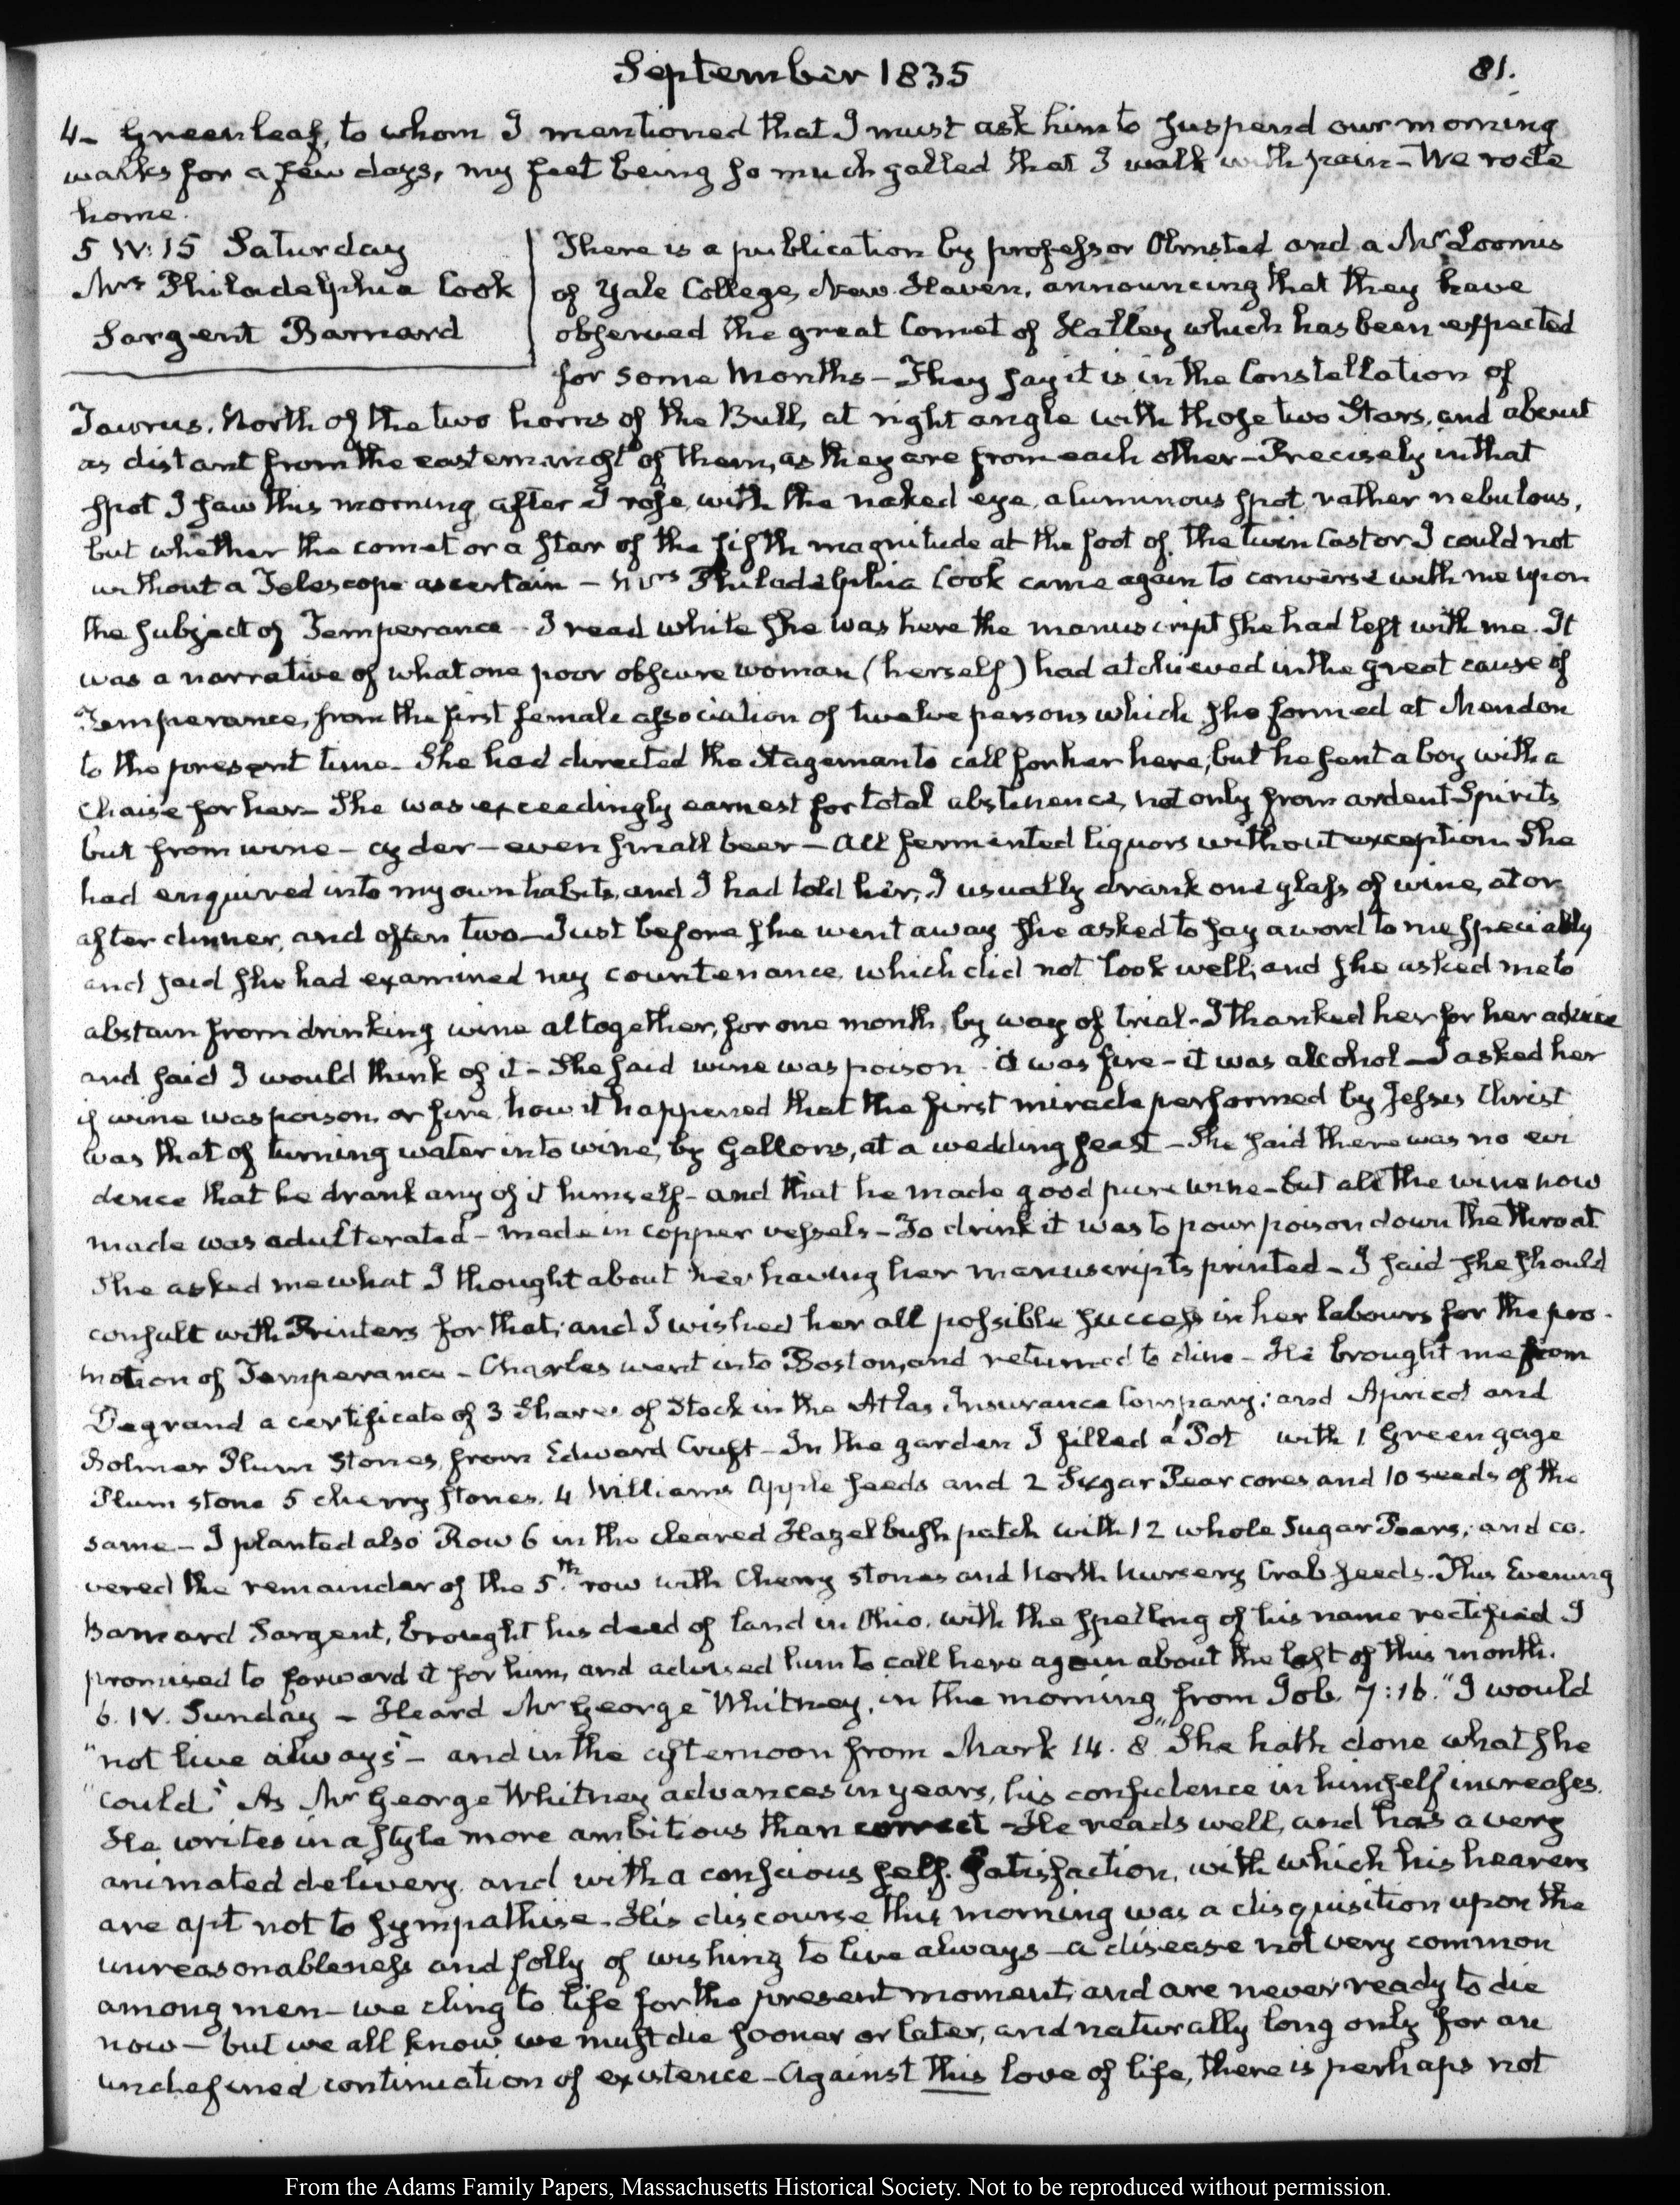 September 1835
81.
4- Greenleaf, to whom I mentioned that I must ask him to suspend our morning
walks for a few days, my feet being so much galled that I walk with pain - We rode
home.
5 IV:15 Saturday
Mrs Philadelphia Cook
Sargent Barnard
There is a publication by professor Olmsted and a Mr Loomis
of Yale College, New-Haven, announcing that they have
observed the great Comet of Halley which has been expected
for some Months - They say it is in the Constellation of
Taurus, North of the two horns of the Bull, at right angle with those two Stars, and about
as distant from the easternmost of them, as they are from each other - Precisely in that
spot I saw this morning after I rose, with the naked eye, a luminous spot, rather nebulous,
but whether the comet or a star of the fifth magnitude at the foot of the twin Castor I could not
without a Telescope ascertain - Mrs Philadelphia Cook came again to converse with me upon
the subject of Temperance - I read while she was here the manuscript she had left with me. It
was a narrative of what one poor obscure woman (herself) had atchieved in the great cause of
Temperance, from the first female association of twelve persons which she formed at Mendon
to the present time - She had directed the Stageman to call for her here; but he sent a boy with a
Chaise for her - She was exceedingly earnest for total abstinence, not only from ardent Spirits
but from wine - cyder - even small beer - all fermented liquors without exception. She
had enquired into my own habits, and I had told her, I usually drank one glass of wine, at or
after dinner, and often two - Just before she went away she asked to say a word to me specially
and said she had examined my countenance which did not look well; and she asked me to
abstain from drinking wine altogether, for one month, by way of trial - I thanked her for her advice
and said I would think of it - She said wine was poison - it was fire - it was alcohol - I asked her
if wine was poison, or fire, how it happened that the first miracle performed by Jesus Christ
was that of turning water into wine, by Gallons, at a wedding feast - She said there was no evi
dence that he drank any of it himself - and that he made good pure wine - but all the wine now
made was adulterated - made in copper vessels - To drink it was to pour poison down the throat
She asked me what I thought about her having her manuscripts printed - I said she should
consult with Printers for that; and I wished her all possible success in her labours for the pro-
motion of Temperance - Charles went into Boston, and returned to dine - He brought me from
Degrand a certificate of 3 Shares of Stock in the Atlas Insurance Company; and Apricot and
Bolmer Plum Stones, from Edward Cruft - In the garden I filled a Pot with 1 Green gage
Plum stone 5 cherry stones, 4 Williams Apple seeds and 2 Sugar Pear cores and 10 seeds of the
same - I planted also Row 6 in the cleared Hazelbush patch with 12 whole Sugar Pears; and co-
vered the remainder of the 5.th row with Cherry stones and North Nursery Crab seeds. This Evening
Barnard Sargent, brought his deed of land in Ohio, with the spelling of his name rectified I
promised to forward it for him, and advised him to call here again about the last of this month.
6. IV. Sunday - Heard Mr George Whitney, in the morning from Job. 7:16. "I would
"not live always" - and in the afternoon from Mark 14. 8 "She hath done what she
"could." As Mr George Whitney advances in years, his confidence in himself increases.
He writes in a style more ambitious than correct - He reads well, and has a very
animated delivery, and with a conscious self-satisfaction, with which his hearers
are apt not to sympathise - His discourse this morning was a disquisition upon the
unreasonableness and folly of wishing to live always - a disease not very common
among men - we cling to life for the present moment, and are never ready to die
now - but we all know we must die sooner or later, and naturally long only for an
undefined continuation of existence - Against this love of life, there is perhaps not
From the Adams Family Papers, Massachusetts Historical Society. Not to be reproduced without permission.